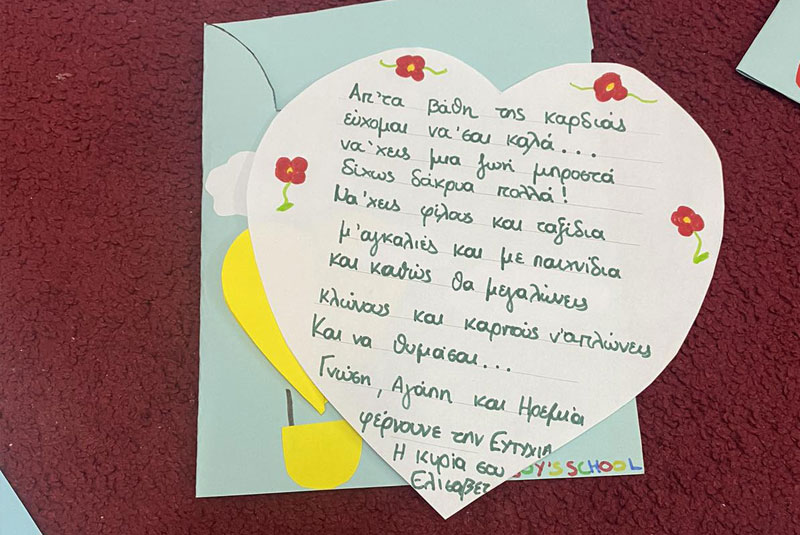 Απ'τα βάθη της καρδιάς
εύχομαι να'σαι καλά...
να'χεις μια ζωή μπροστά
δίχως δάκρυα πολλά!
Να'χεις φίλους και ταξίδια
μ'αγκαλιές και με παιχνίδια
και καθώς θα μεγαλώνεις
κλώνους και καρπούς ν'απλώνεις
Και να θυμάσαι...
Γνώση, Αγάπη και Ηρεμία
φέρνουνε την Ευτυχία
Η κυρία σου
Ελισάβετ
SCHOOL